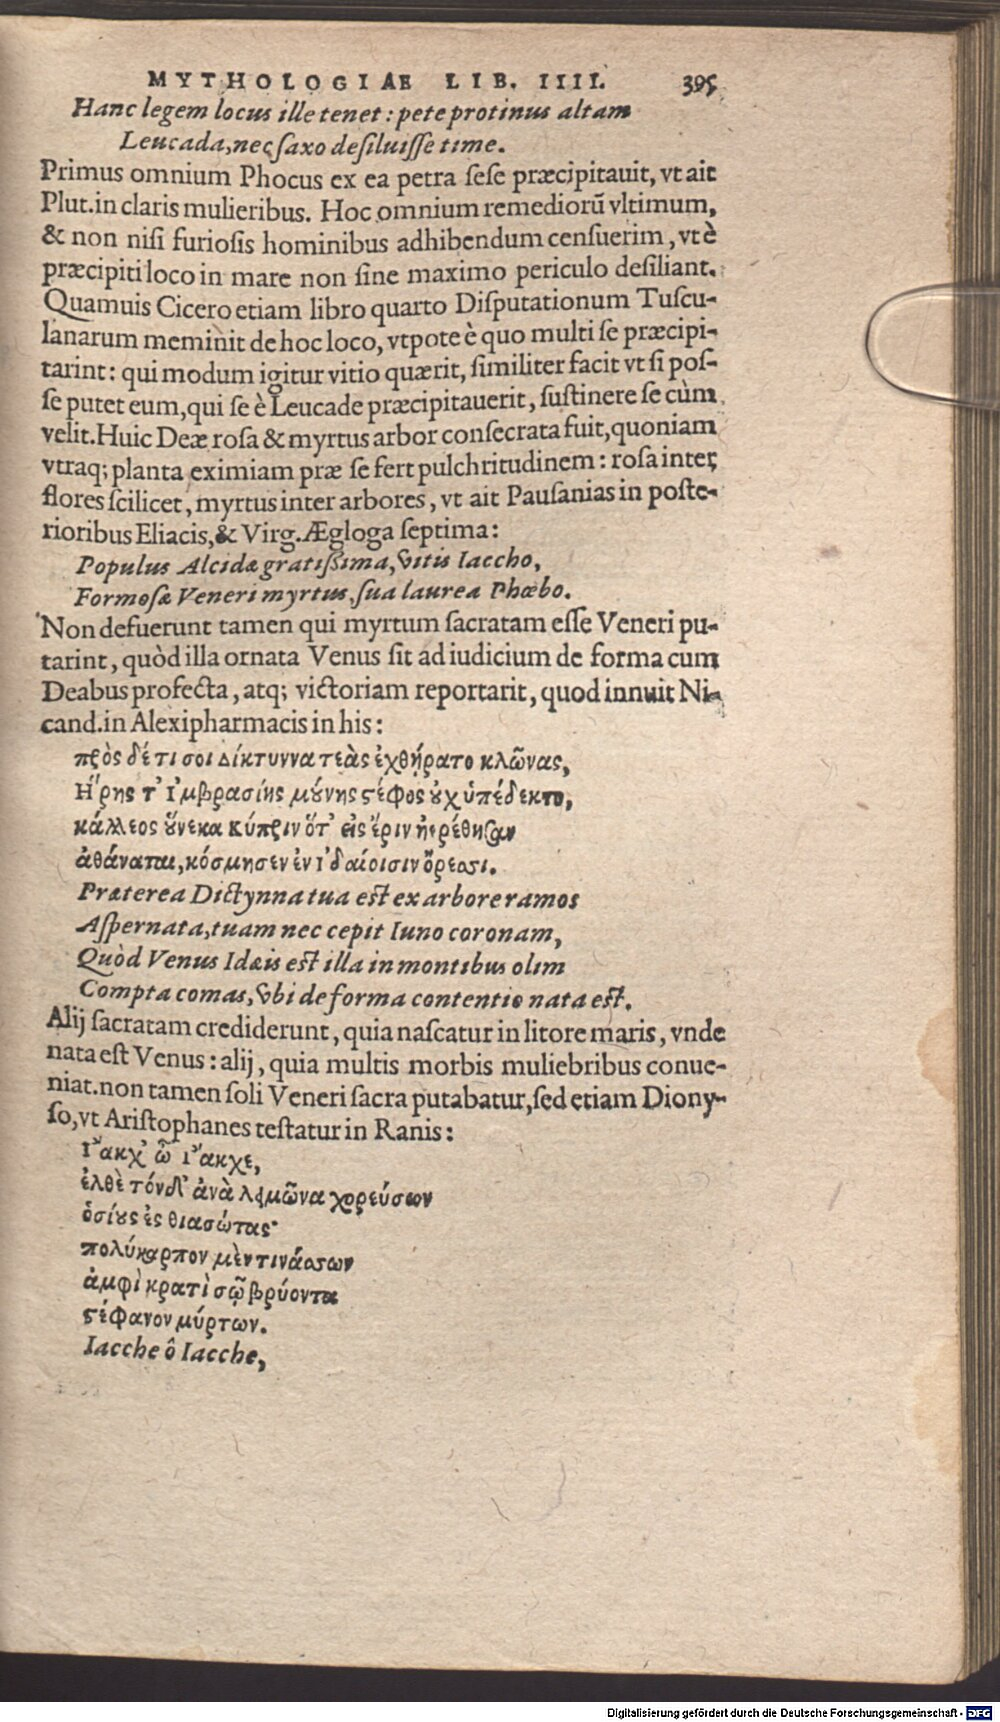 MYTHOLOGIAE LIB. IIII. 395
Hanc legem locus ille tenet: pete protinus altam
Leucada, nec saxo desiluisse time.
Primus omnium Phocus ex ea petra sese præcipitauit, vt ait
Plut. in claris mulieribus. Hoc omnium remediorū vltimum,
& non nisi furiosis hominibus adhibendum censuerim, vt è
præcipiti loco in mare non sine maximo periculo desiliant.
Quamuis Cicero etiam libro quarto Disputationum Tuscu-
lanarum meminit de hoc loco, vtpote è quo multi se præcipi-
tarint: qui modum igitur vitio quærit, similiter facit vt si pos-
se putet eum, qui se è Leucade præcipitauerit, sustinere se cùm
velit. Huic Deæ rosa & myrtus arbor consecrata fuit, quoniam
vtraq; planta eximiam præ se fert pulchritudinem: rosa inter
flores scilicet, myrtus inter arbores, vt ait Pausanias in poste-
rioribus Eliacis, & Virg. Ægloga septima:
Populus Alcidæ gratissima, vitis Iaccho,
Formosæ Veneri myrtus, sua laurea Phœbo.
Non defuerunt tamen qui myrtum sacratam esse Veneri pu-
tarint, quòd illa ornata Venus sit ad iudicium de forma cum
Deabus profecta, atq; victoriam reportarit, quod innuit Ni-
cand. in Alexipharmacis in his:
πρὸς δέ τι σοι Δίκτυννα τεὰς ἐχθήρατο κλῶνας,
Ἥρης τ' Ἰμβρασίης μούνης στέφος οὐχ ὑπέδεκτο,
κάλλεος οὕνεκα Κύπριν ὅτ' εἰς ἔριν ἠερέθησαν
ἀθάναται, κόσμησεν ἐν Ἰδαίοισιν ὄρεσσι.
Præterea Dictynna tua est ex arbore ramos
Aspernata, tuam nec cepit Iuno coronam,
Quòd Venus Idæis est illa in montibus olim
Compta comas, vbi de forma contentio nata est.
Alij sacratam crediderunt, quia nascatur in litore maris, vnde
nata est Venus: alij, quia multis morbis muliebribus conue-
niat. non tamen soli Veneri sacra putabatur, sed etiam Diony-
so, vt Aristophanes testatur in Ranis:
Ἴακχ' ὦ Ἴακχε,
ἐλθὲ τόνδ' ἀνὰ λειμῶνα χορεύσων
ὁσίους ἐς θιασώτας·
πολύκαρπον μὲν τινάσσων
ἀμφὶ κρατὶ σῷ βρύοντα
στέφανον μύρτων.
Iacche ô Iacche,
Digitalisierung gefördert durch die Deutsche Forschungsgemeinschaft - DFG